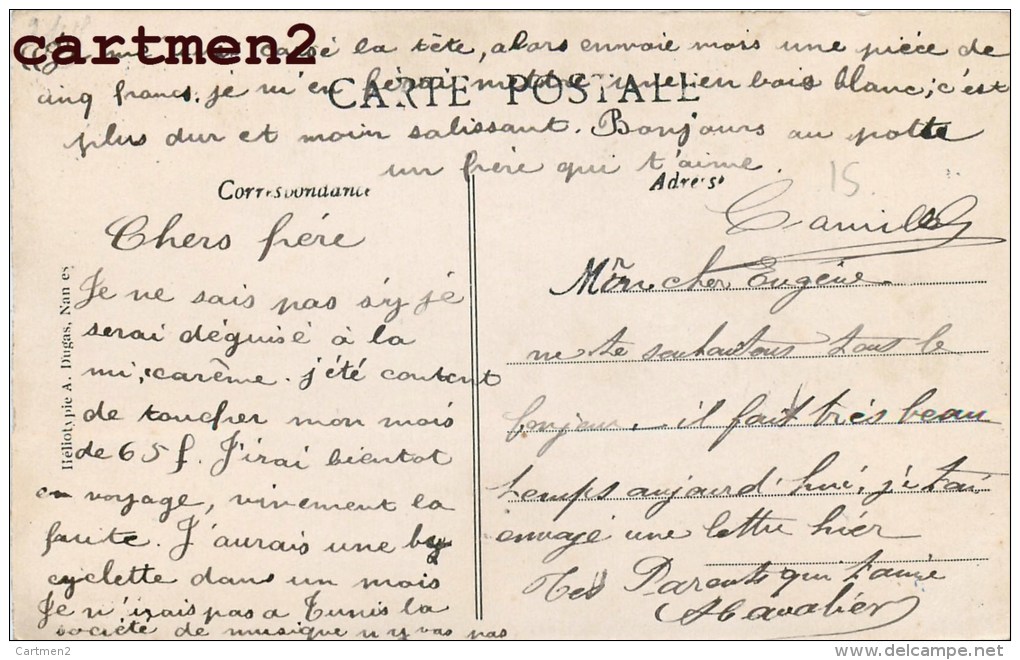 cartmen2
cassé la tête, alors envoie mois une pièce de
cinq francs. je m'en ferai mettre une en bois blanc; c'est
CARTE POSTALE
plus dur et moin salissant. Bonjours au potte
un frère qui t'aime.
15.
Correspondance
Adresse
Camille
Chers frére
Je ne sais pas s'y jé
serai déguisé à la
mi-carême. j'été content
de toucher mon mois
de 65 f. J'irai bientot
en voyage, vivement la
faute. J'aurais une by
cyclette dans un mois
Je n'irais pas a Tunis la
société de musique n'y vas pas
Mon cher Eugéne
ne te souhaitons tous le
bonjour, il fait trés beau
temps aujourd'hui, jé t'ai
envoyé une lettre hier
Tes Parents qui t'aime
Héliotypie A. Dugas, Nantes
Cartmen2
www.delcampe.net